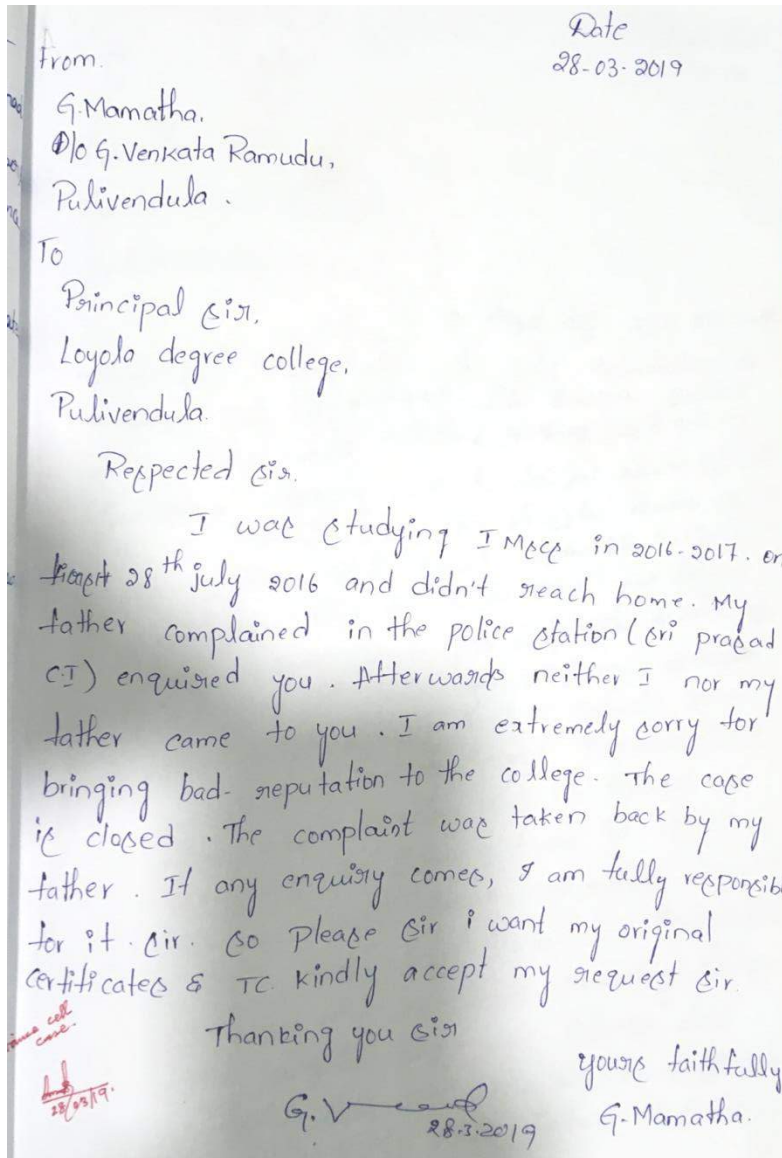 Date
28-03-2019
From.
G.Mamatha,
D/o G.Venkata Ramudu,
Pulivendula.
To
Principal sir,
Loyola degree college,
Pulivendula.
Respected sir.
I was studying I Mscs in 2016-2017. on
28th july 2016 and didn't reach home. My
father complained in the police station (sri prasad
C.I) enquired you. Afterwards neither I nor my
father came to you. I am extremely sorry for
bringing bad-reputation to the college. The case
is closed. The complaint was taken back by my
father. If any enquiry comes, I am fully responsib
for it. sir. so Please sir i want my original
certificates & TC. Kindly accept my request sir.
Thanking you sir
yours faithfully
G.Mamatha.
cell
case.
28/03/19.
G.V
28.3.2019